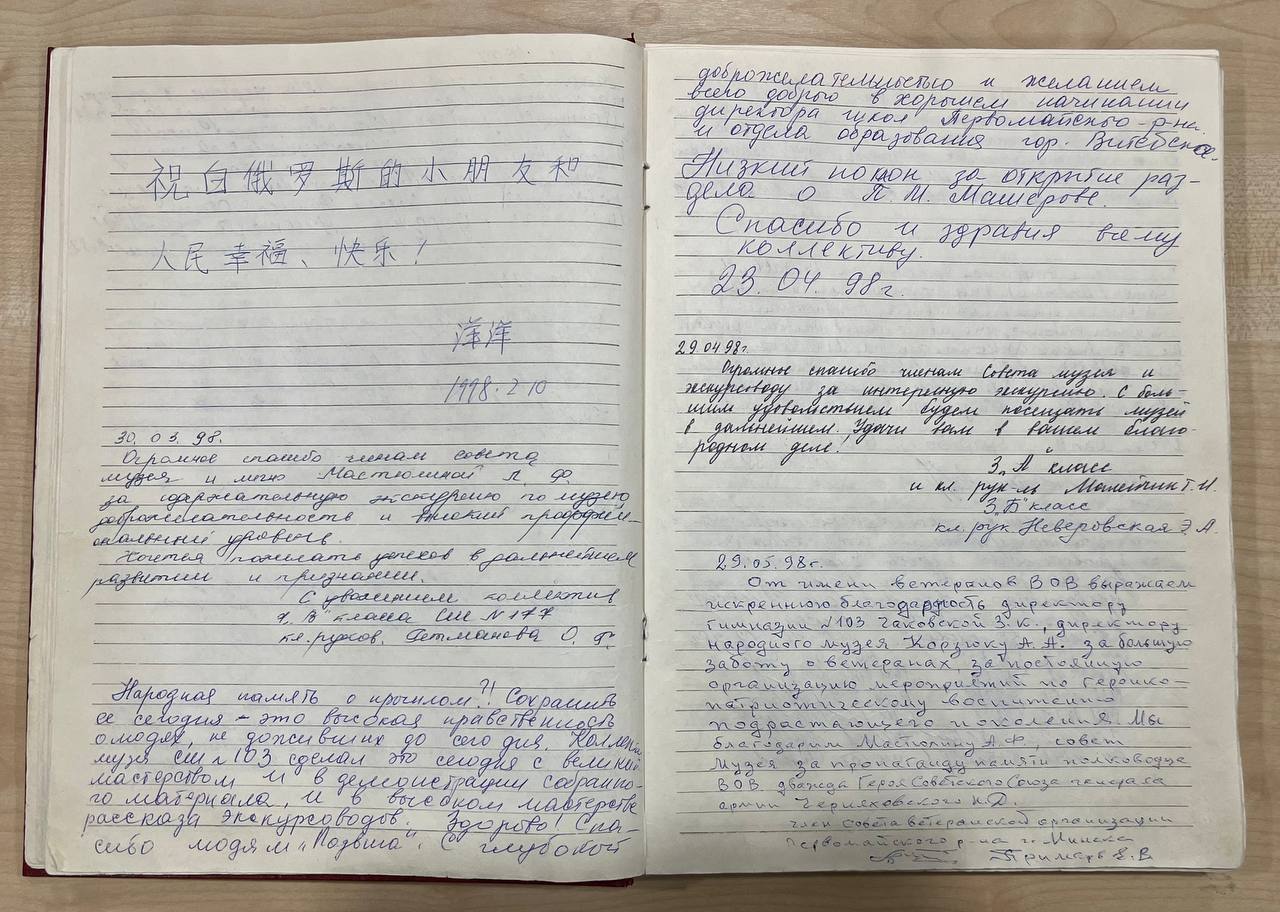 祝白俄罗斯的小朋友和
人民幸福、快乐!
洋洋
1998.2.10
30. 03. 98.
Огромное спасибо членам совета
музея и лично Мастюлиной Л. Ф.
за содержательную экскурсию по музею
доброжелательность и высокий професси-
ональный уровень.
Хочется пожелать успехов в дальнейшем
развитии и признании.
С уважением коллектив
"В" класса СШ N 177
кл. руков. Гетманова О. Ф.
Народная память о прошлом?! Сохранить
ее сегодня - это высокая нравственность
о людях, не доживших до сего дня. Коллектив
музея СШ N 103 сделал это сегодня с великим
мастерством и в демонстрации собранно-
го материала, и в высоком мастерстве
рассказа экскурсоводов. Здорово! Спа-
сибо людям "Подвига". С глубокой
доброжелательностью и желанием
всего доброго в хорошем начинании
директора школ Первомайского р-на
и отдела образования гор. Витебска.
Низкий поклон за открытие раз-
дела о П. М. Машерове.
Спасибо и здравия всему
коллективу.
23. 04. 98 г.
29 04 98г.
Огромное спасибо членам Совета музея и
экскурсоводу за интересную экскурсию. С боль-
шим удовольствием будем посещать музей
в дальнейшем. Удачи вам в вашем благо-
родном деле!
3 "А" класс
и кл. рук-ль Г. И.
3 "Б" класс
кл. рук. Неверовская Э. А.
29. 05. 98 г.
От имени ветеранов ВОВ выражаем
искреннюю благодарность директору
гимназии N 103 Чаковской З. К., директору
народного музея Корзюку А. А. за большую
заботу о ветеранах, за постоянную
организацию мероприятий по героико-
патриотическому воспитанию
подрастающего поколения. Мы
благодарим Мастюлину Л. Ф., совет
музея за пропаганду памяти полководца
ВОВ дважды Героя Советского Союза генерала
армии Черняховского И. Д.
член Совета ветеранской организации
Первомайского р-на г. Минска
Е. В.